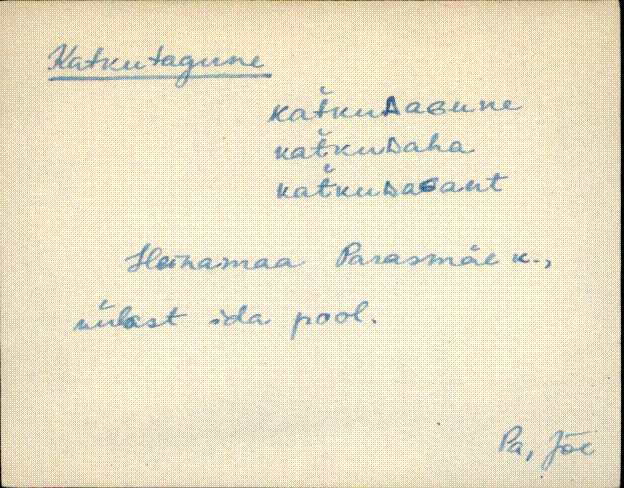 Katkutagune
kat̆kuDaGune
kat̆kuDaha
kat̆kuDaGant
Heinamaa Parasmäe k.,
külast ida pool.
Pa, Jõe